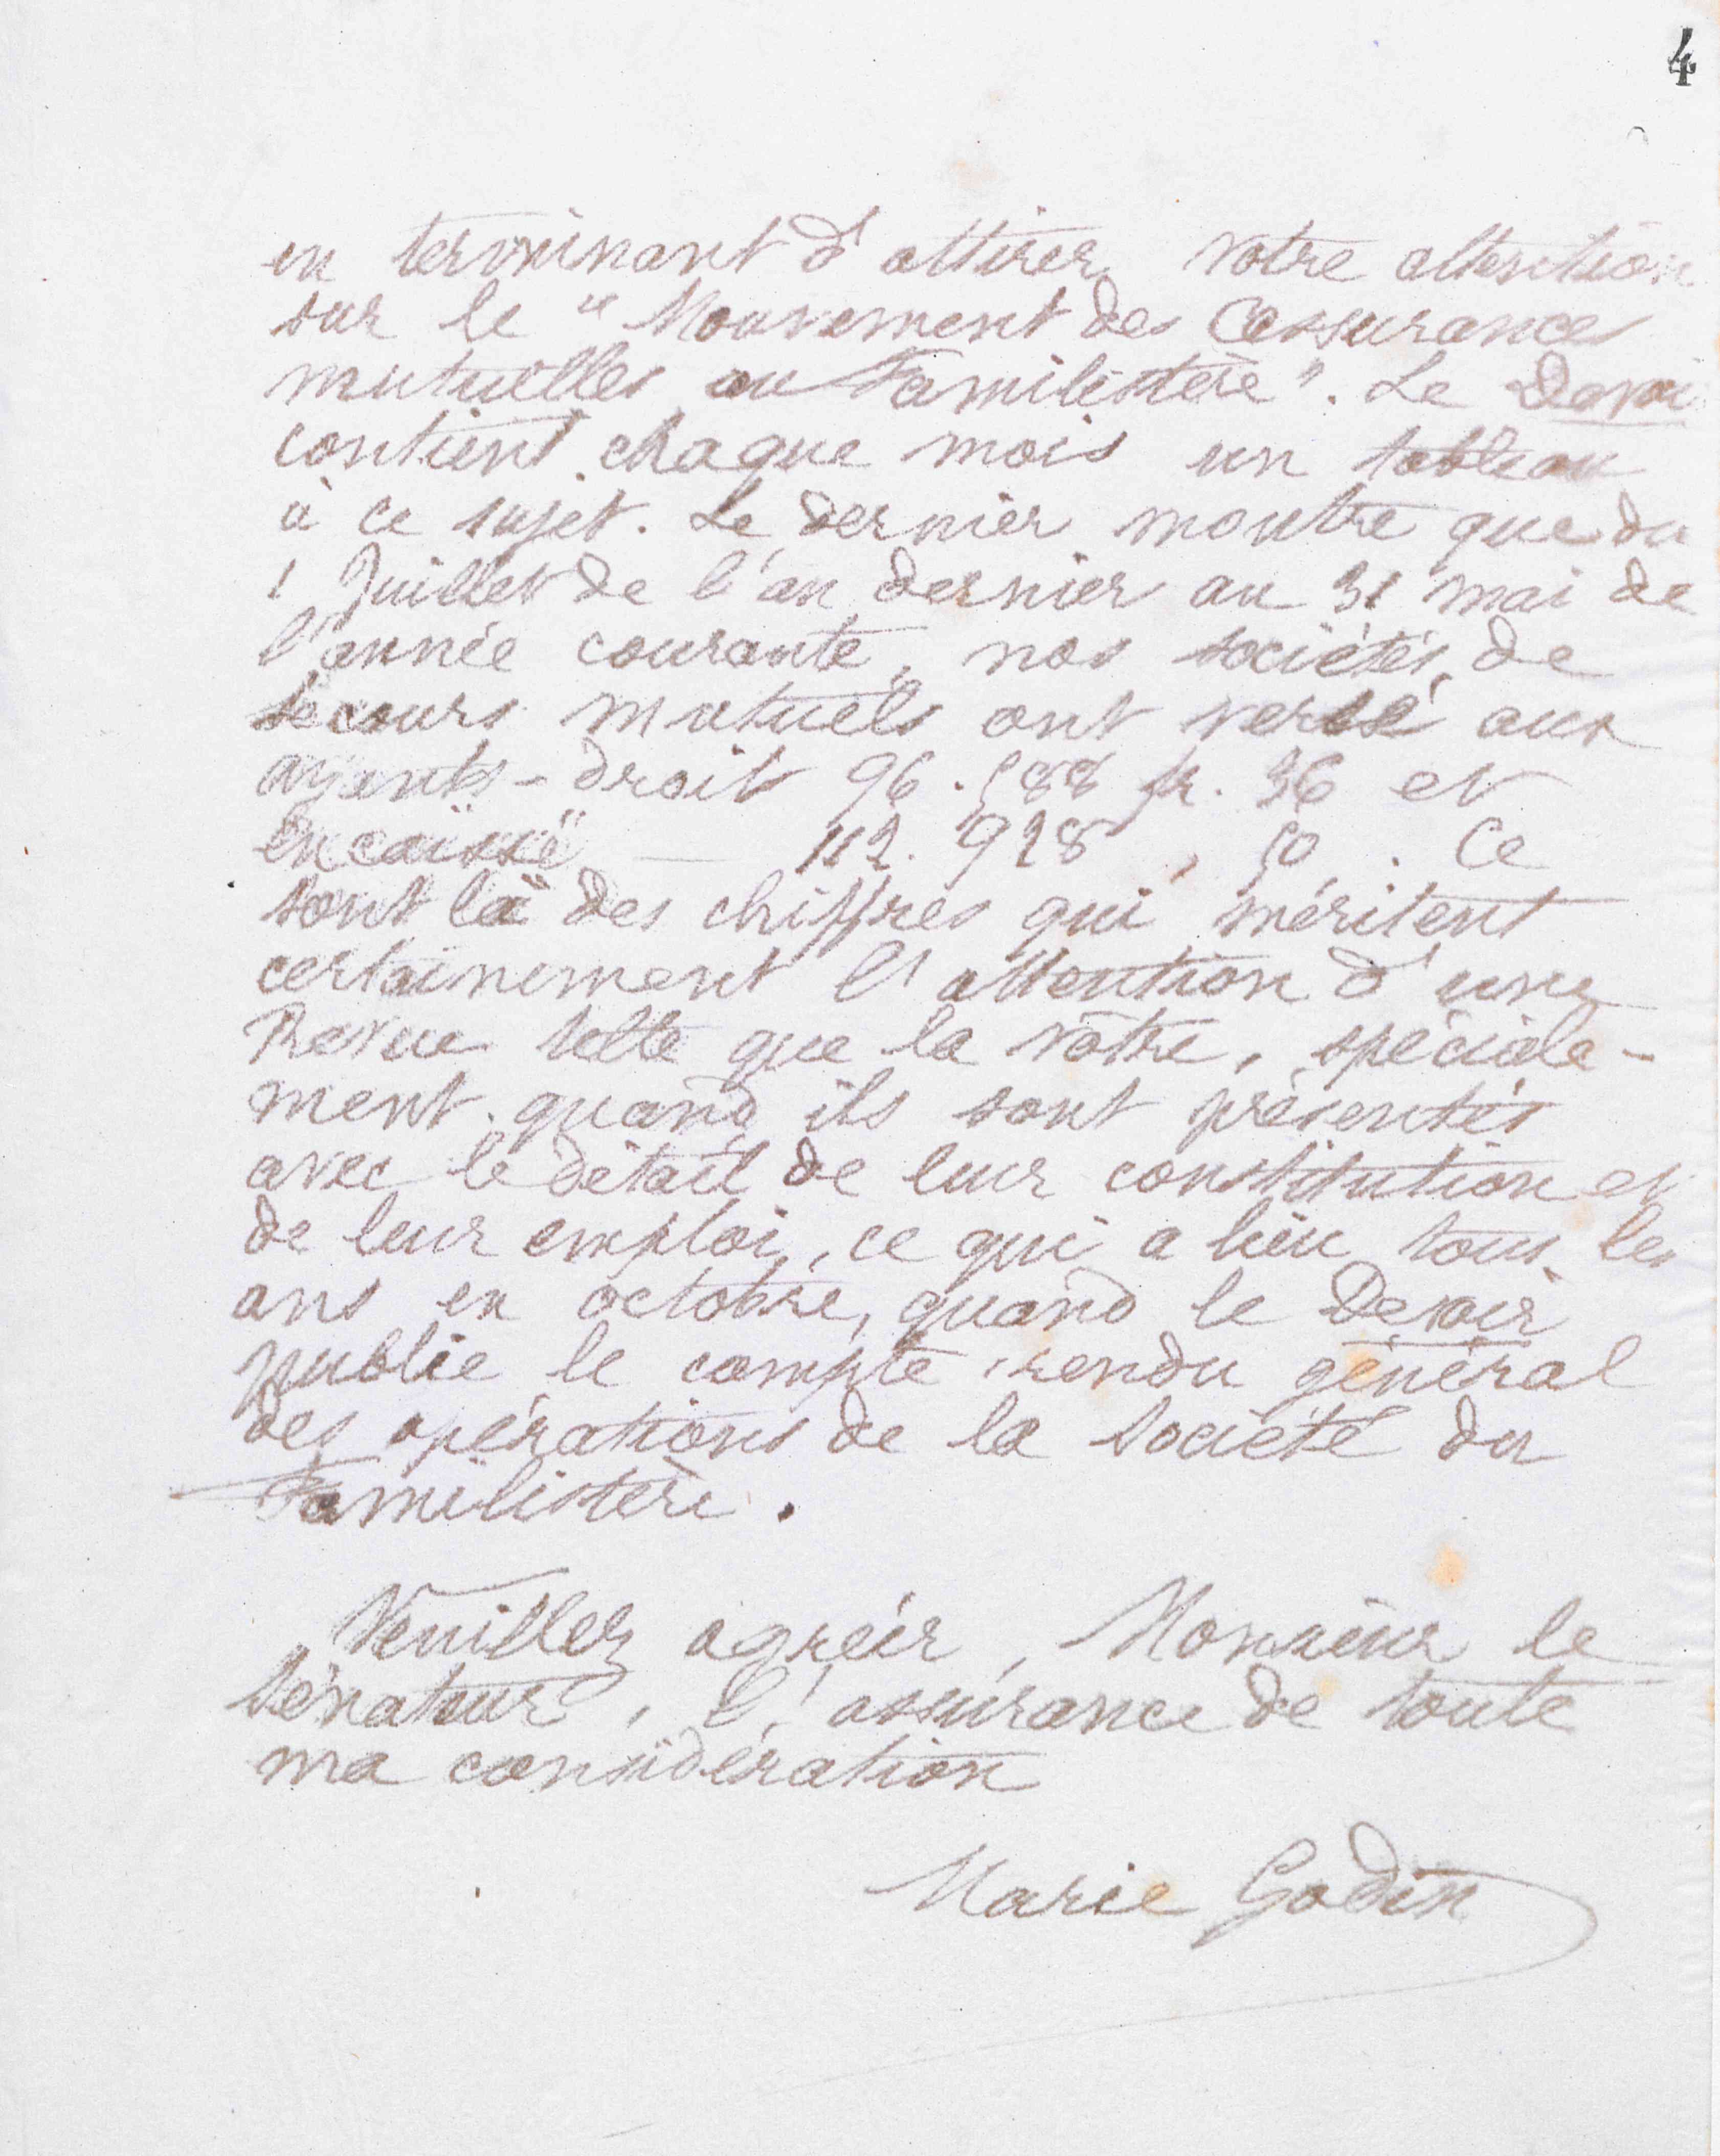 4
en terminant d'attirer votre attention
sur le "Mouvement des Assurances
mutuelles au Familistère". Le Devoir
contient chaque mois un tableau
à ce sujet. Le dernier montre que du
1 Juillet de l'an dernier au 31 mai de
l'année courante, nos sociétés de
secours mutuels ont versé aux
ayants-droit 96.588 fr. 36 et
encaissé — 112.928, 50. Ce
sont là des chiffres qui méritent
certainement l'attention d'une
Revue telle que la vôtre, spéciale-
ment quand ils sont présentés
avec le détail de leur constitution et
de leur emploi, ce qui a lieu tous les
ans en octobre, quand le Devoir
publie le compte rendu général
des opérations de la Société du
Familistère.
Veuillez agréer, Monsieur le
Sénateur, l'assurance de toute
ma considération
Marie Godin